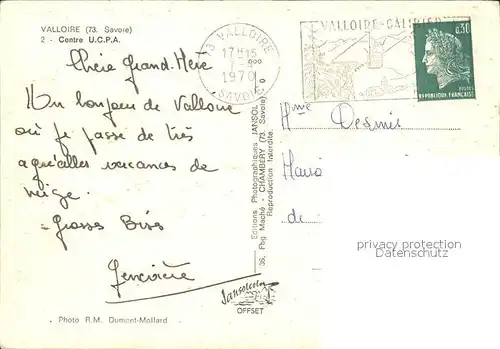 VALLOIRE (73. Savoie)
2 - Centre U.C.P.A.
Chère Grand-Mère
Un bonjour de Valloire
où je passe de très
agréables vacances de
neige.
Grosses Bises
Geneviève
Photo R.M. Dumont-Mollard
Editions Photographiques JANSOL
36, Fbg Maché - CHAMBERY (73. Savoie)
Reproduction Interdite.
Jansolcolor
OFFSET
73 VALLOIRE
17H15
1970
SAVOIE
VALLOIRE-GALIBIER
0,30
POSTES
REPUBLIQUE FRANÇAISE
Mme Desmis
de
privacy protection
Datenschutz